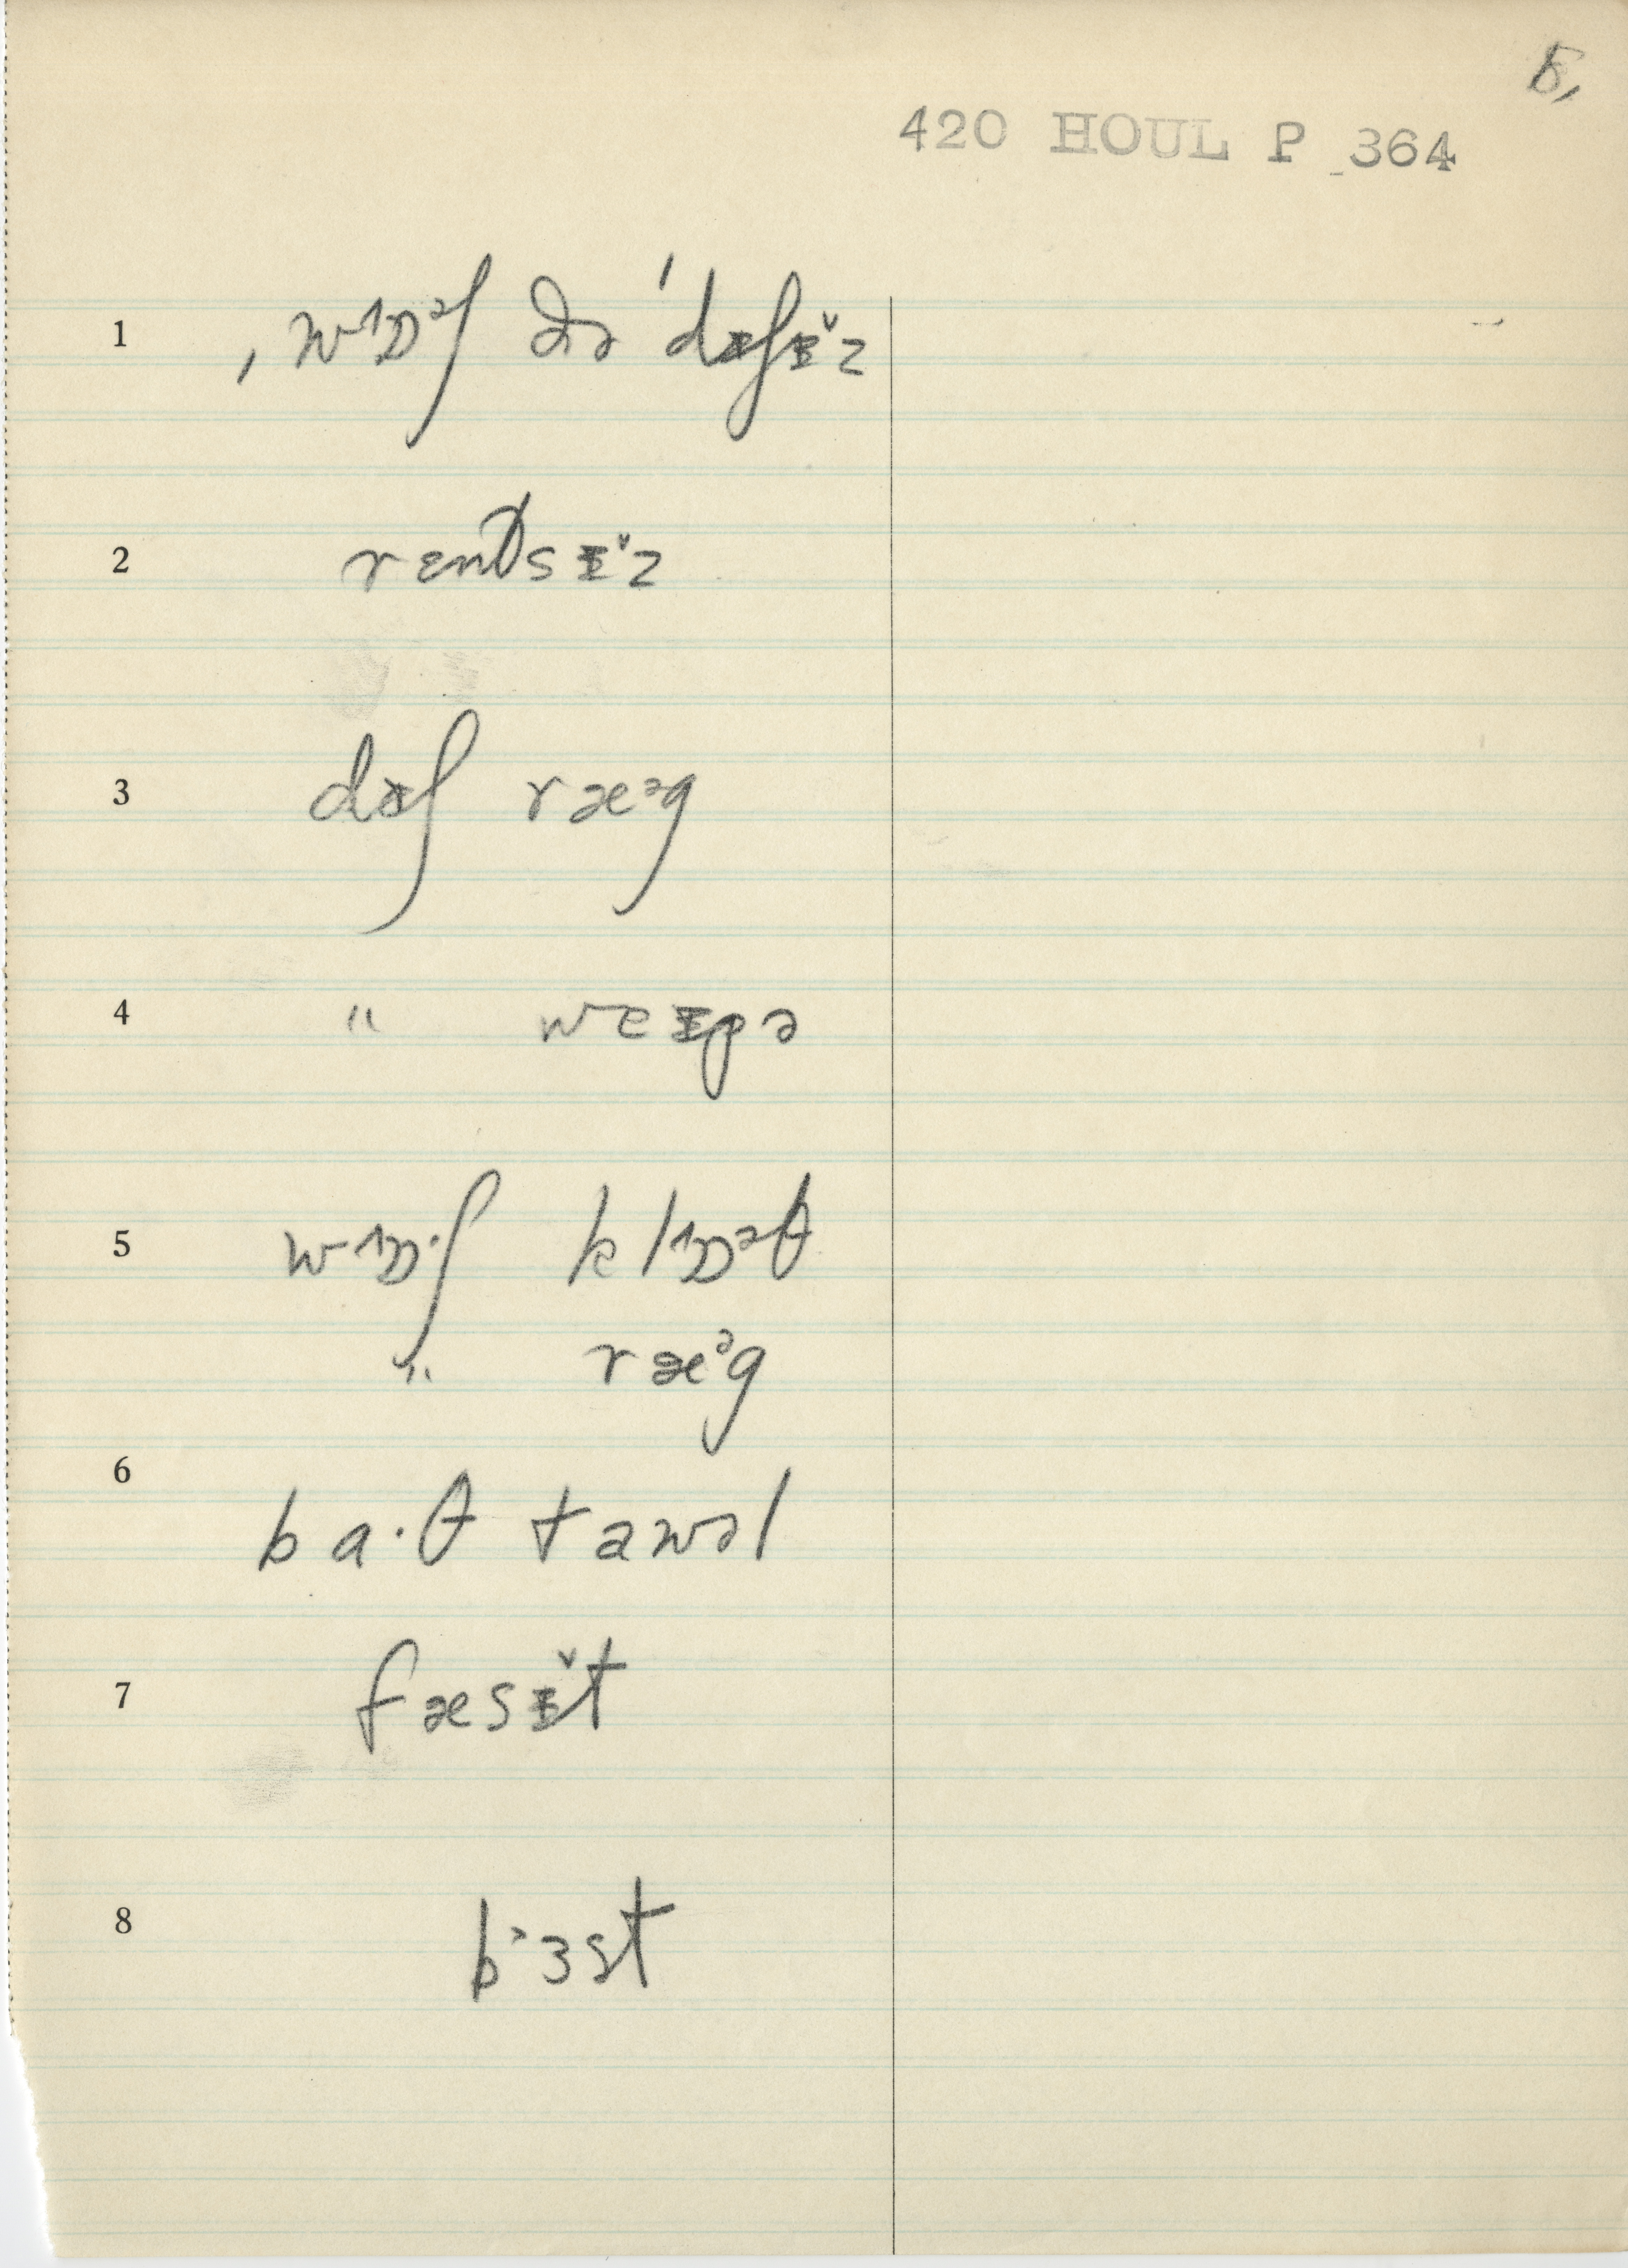 5,
420 HOUL P 364
1 ˌwɒᵊʃ ðə ˈdɪʃɪ̌z
2 rensɪ̌z
3 dɪʃ ræᵊg
4 " weɪpə
5 wɒ·ʃ klɒᵊθ
" ræᵊg
6
ba·θ tawəl
7 fæsɪ̌t
8 bᵊɜst